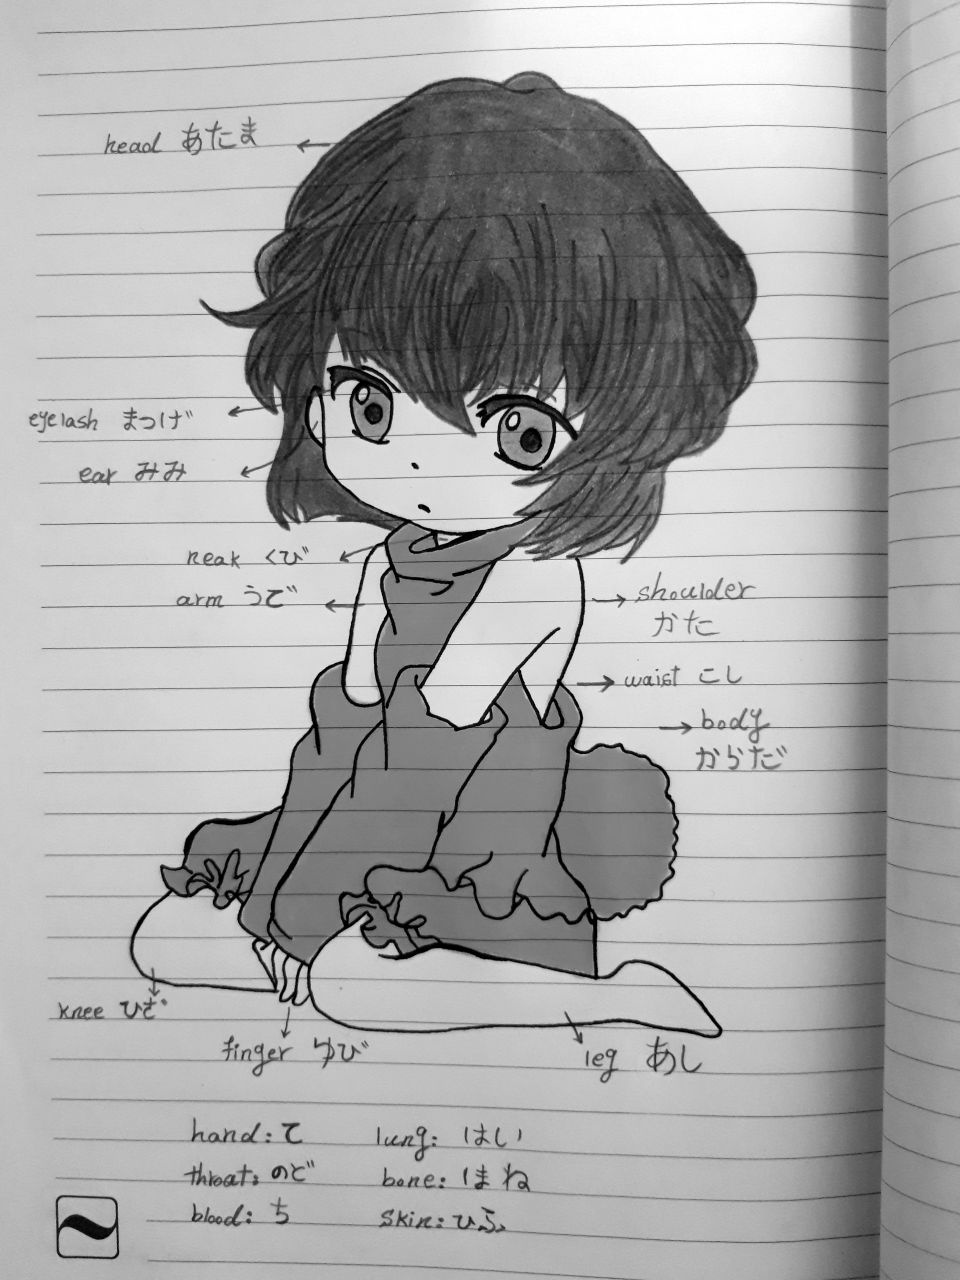 head あたま
eyelash まつげ
ear みみ
neak くび
arm うで
shoulder
かた
waist こし
body
からだ
knee ひざ
finger ゆび
leg あし
hand: て
lung: はい
throat: のど
bone: ほね
blood: ち
skin: ひふ